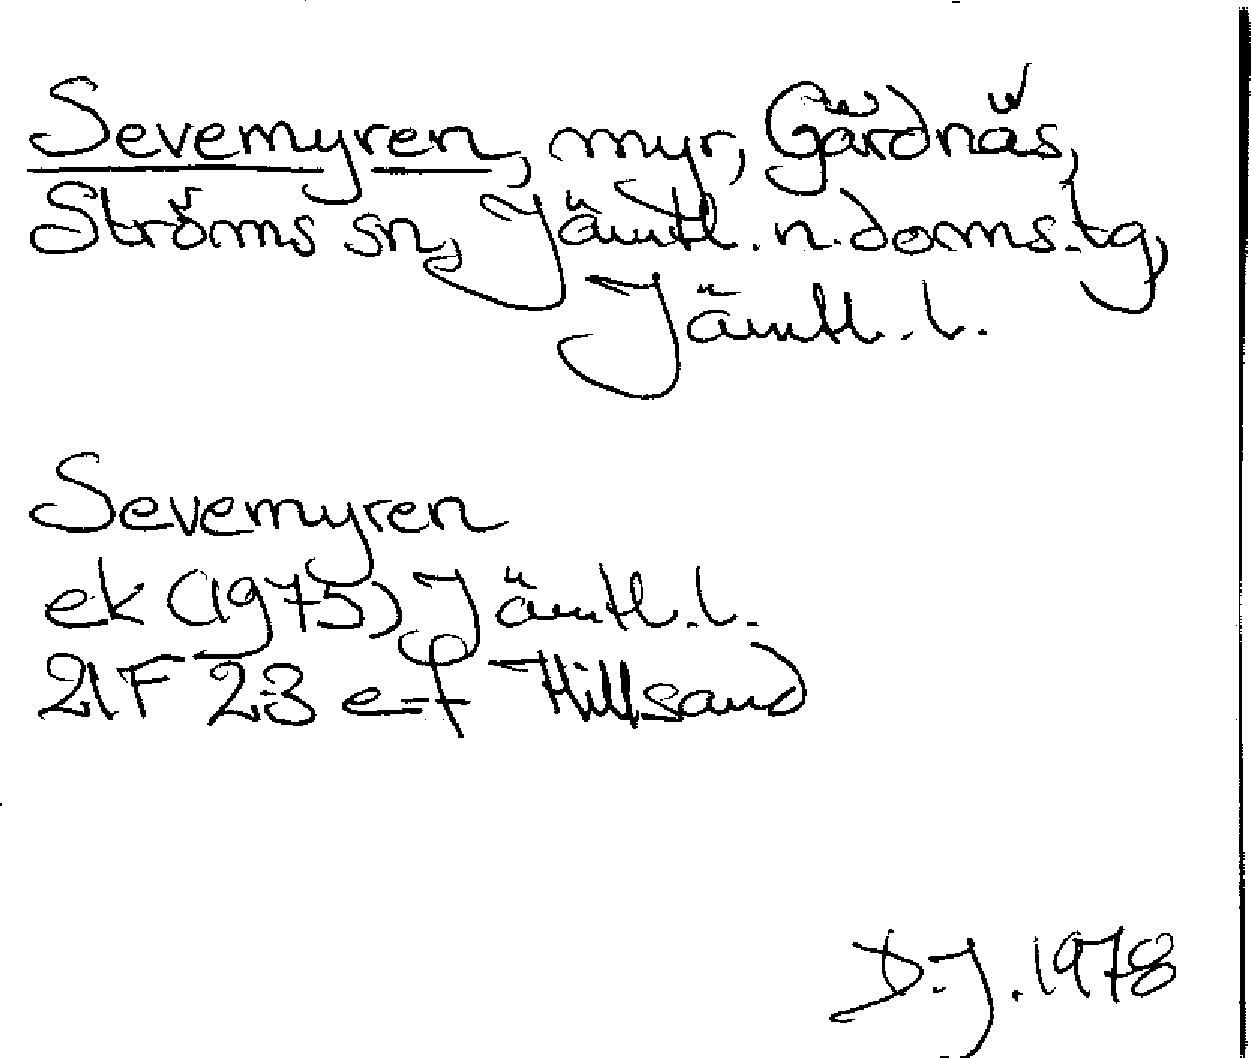 Sevemyren, myr, Gärdnäs,
Ströms sn, Jämtl. n. doms. tg,
Jämtl. l.
Sevemyren
ek (1975) Jämtl. l.
21F 2-3 e-f Hillsand
D.J. 1978